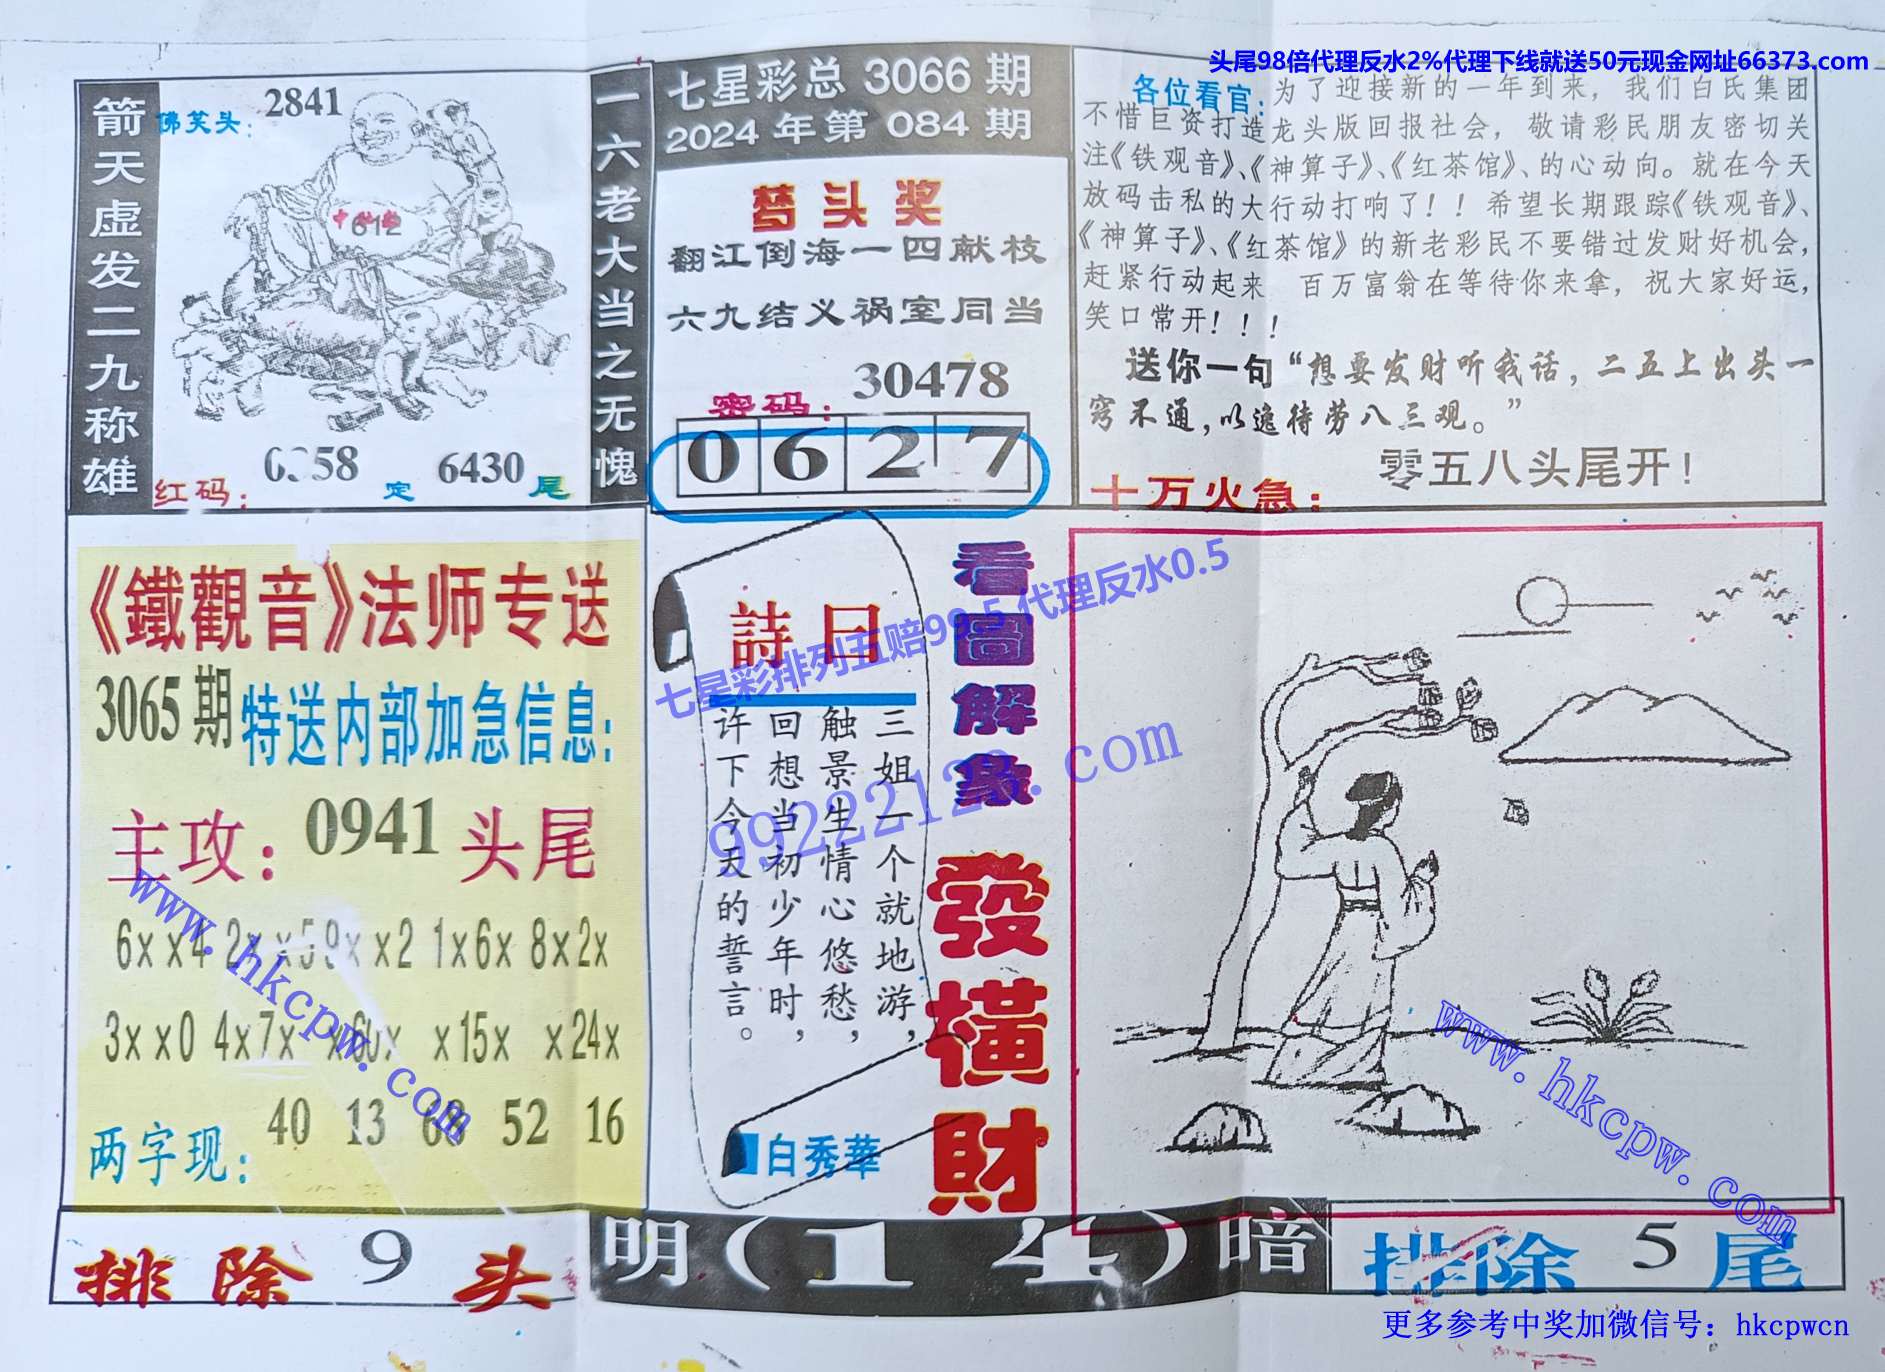 头尾98倍代理反水2%代理下线就送50元现金网址66373.com
箭天虚发二九称雄
佛笑头:
2841
中
612
红码:
定
6430
尾
一六老大当之无愧
七星彩总 3066 期
2024 年第 084 期
梦头奖
翻江倒海一四献枝
六九结义祸室同当
密码:
30478
0 6 2 7
各位看官:
为了迎接新的一年到来，我们白氏集团
不惜巨资打造龙头版回报社会，敬请彩民朋友密切关
注《铁观音》、《神算子》、《红茶馆》、的心动向。就在今天
放码击私的大行动打响了！！希望长期跟踪《铁观音》、
《神算子》、《红茶馆》的新老彩民不要错过发财好机会，
赶紧行动起来 百万富翁在等待你来拿，祝大家好运，
笑口常开！！！
送你一句“想要发财听我话，二五上出头一
窍不通，以逸待劳八三观。”
十万火急:
零五八头尾开！
《鐵觀音》法师专送
3065期
特送内部加急信息:
主攻:
0941
头尾
6xx4 2xx5 9xx2 1x6x 8x2x
3xx0 4x7x x60x x15x x24x
两字现:
40 13 68 52 16
詩曰
三姐一个就地游，
触景生情心悠愁，
回想当初少年时，
许下今天的誓言。
白秀華
看圖解象
發橫財
七星彩排列五赔99.5 代理反水0.5
www.hkcpw.com
www.hkcpw.com
排除 9 头
明(14)暗
排除 5 尾
更多参考中奖加微信号: hkcpwcn